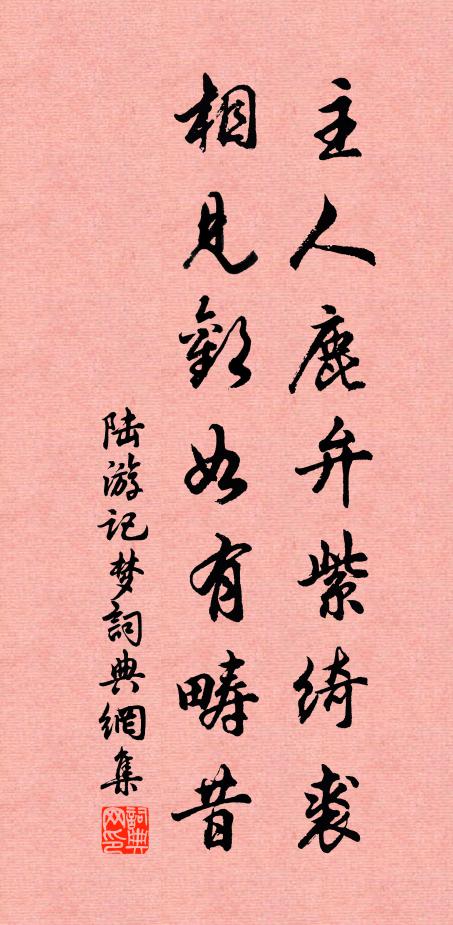 主人鹿弁紫绮裘
相见歡如有畴昔
陆游记梦詞典網集
詞典网印